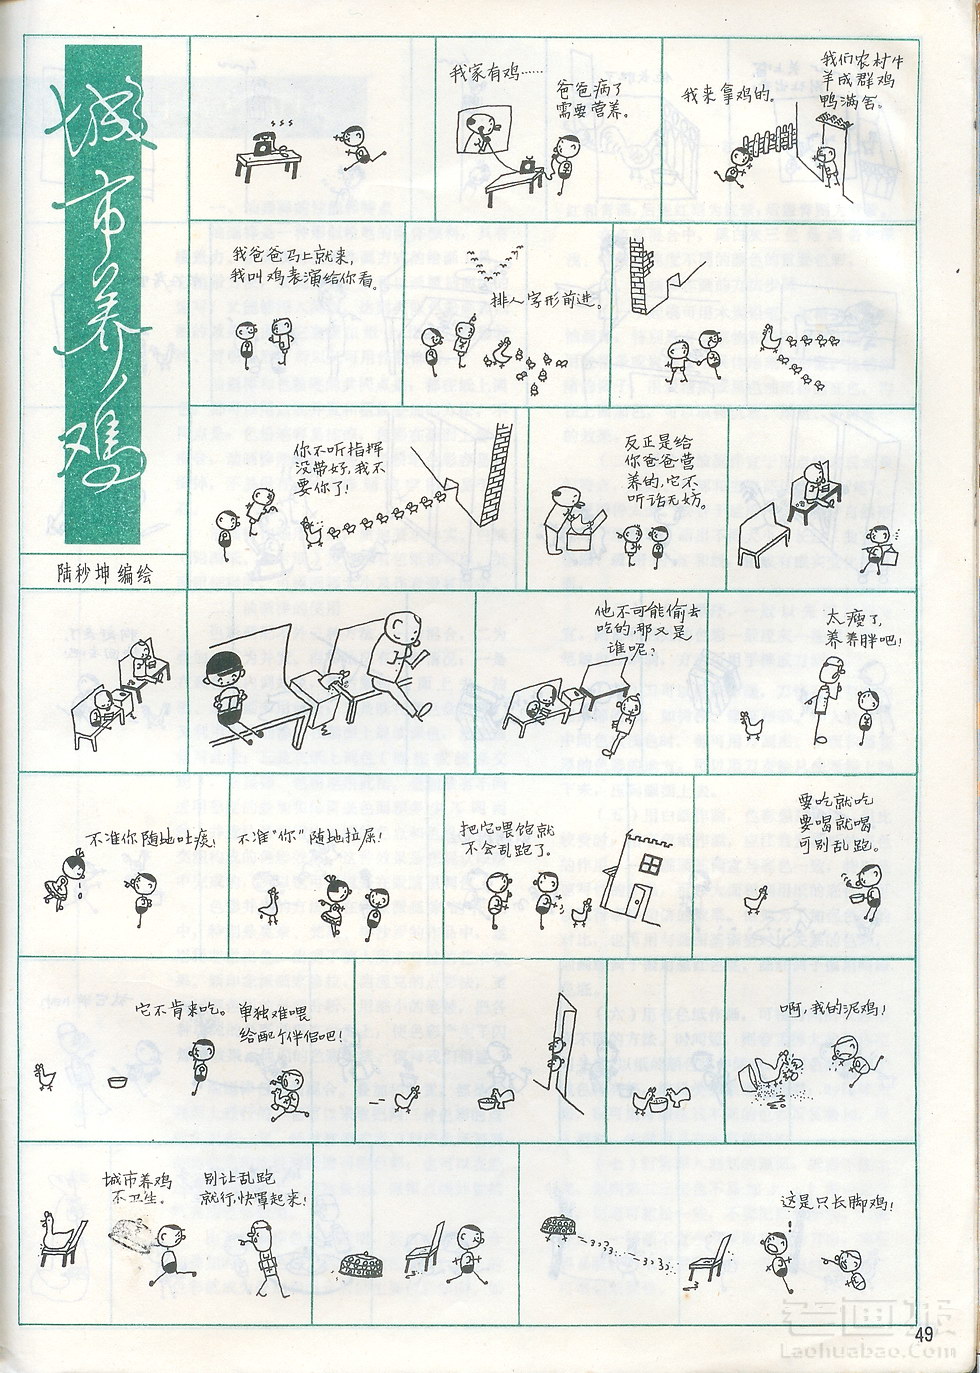 城市养鸡
陆秒坤 编绘
我家有鸡……
爸爸病了
需要营养。
我来拿鸡的。
我们农村牛
羊成群鸡
鸭满舍。
我爸爸马上就来,
我叫鸡表演给你看。
排人字形前进。
你不听指挥
没带好,我不
要你了!
反正是给
你爸爸营
养的,它不
听话无妨。
他不可能偷去
吃的,那又是
谁呢?
太瘦了,
养养胖吧!
不准你随地吐痰!
不准“你”随地拉屎!
把它喂饱就
不会乱跑了。
要吃就吃
要喝就喝
可别乱跑。
它不肯来吃。
单独难喂
给配个伴侣吧!
啊,我的泥鸡!
城市养鸡
不卫生。
别让乱跑
就行,快罩起来!
这是只长脚鸡!
49
老画报
Laohuabao.Com